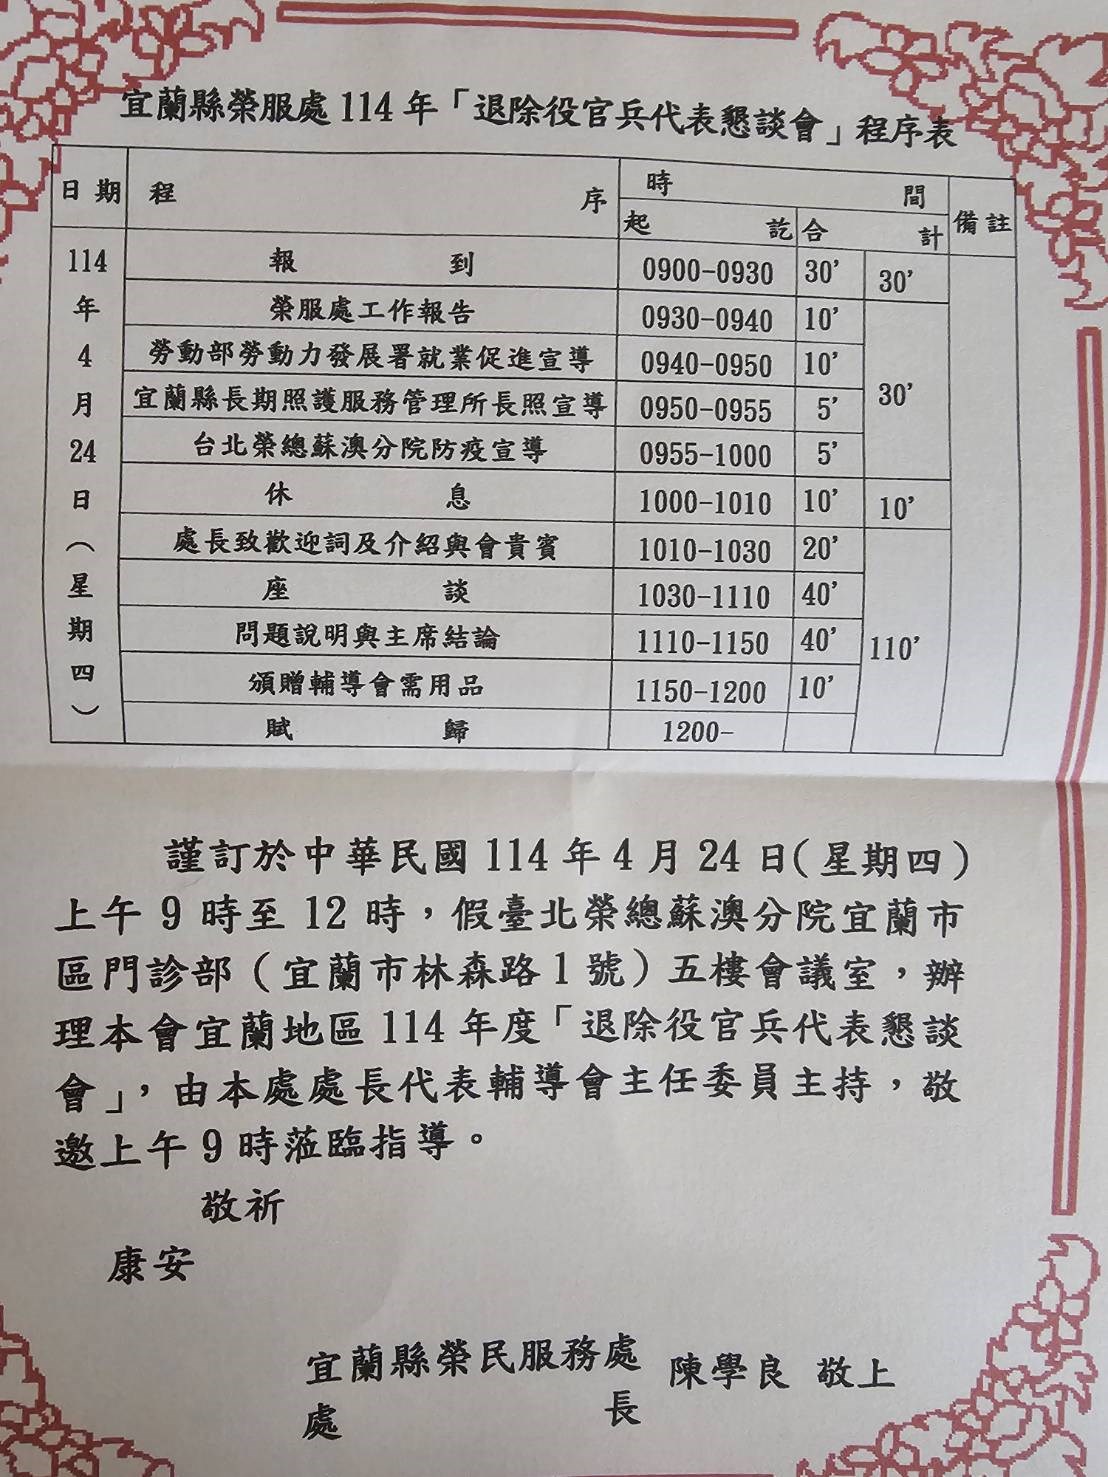 宜蘭縣榮服處114年「退除役官兵代表懇談會」程序表
日期 程序 時間 備註
起訖 合計
114年4月24日（星期四）
報到 0900-0930 30' 30'
榮服處工作報告 0930-0940 10' 30'
勞動部勞動力發展署就業促進宣導 0940-0950 10'
宜蘭縣長期照護服務管理所長照宣導 0950-0955 5'
台北榮總蘇澳分院防疫宣導 0955-1000 5'
休息 1000-1010 10' 10'
處長致歡迎詞及介紹與會貴賓 1010-1030 20' 110'
座談 1030-1110 40'
問題說明與主席結論 1110-1150 40'
頒贈輔導會需用品 1150-1200 10'
賦歸 1200-
謹訂於中華民國114年4月24日(星期四)
上午9時至12時，假臺北榮總蘇澳分院宜蘭市
區門診部（宜蘭市林森路1號）五樓會議室，辦
理本會宜蘭地區114年度「退除役官兵代表懇談
會」，由本處處長代表輔導會主任委員主持，敬
邀上午9時蒞臨指導。
敬祈
康安
宜蘭縣榮民服務處
處長 陳學良 敬上